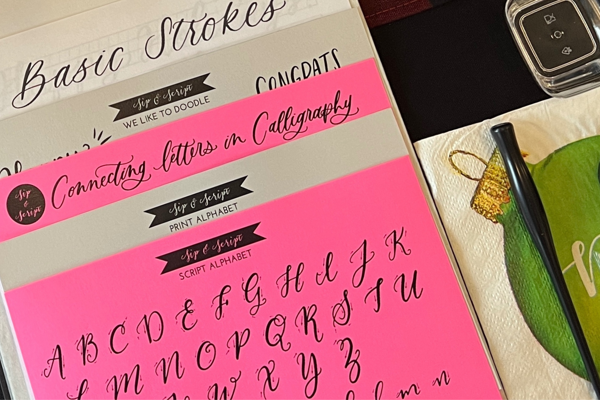 Basic Strokes
CONGRATS
Sip & Script
WE LIKE TO DOODLE
Sip & Script
Connecting letters in Calligraphy
Sip & Script
PRINT ALPHABET
Sip & Script
SCRIPT ALPHABET
A B C D E F G H I J K
L M N O P Q R S T U
W X Y Z
l m n